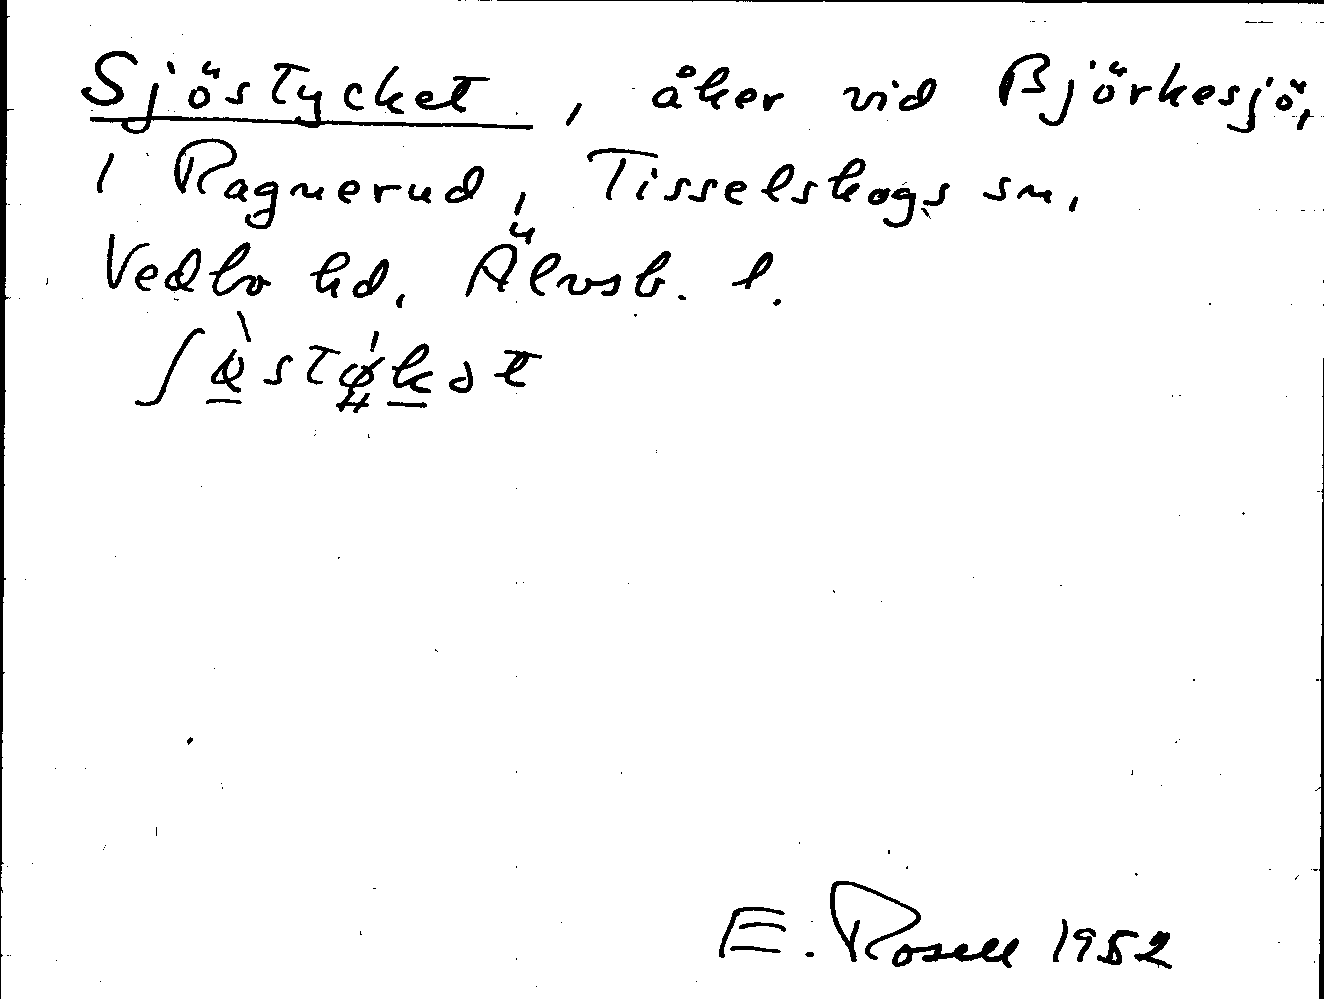 Sjöstycket, åker vid Björkesjö,
1 Ragnerud, Tisselskogs sn,
Vedbo hd, Älvsb. l.
E. Rosell 1952